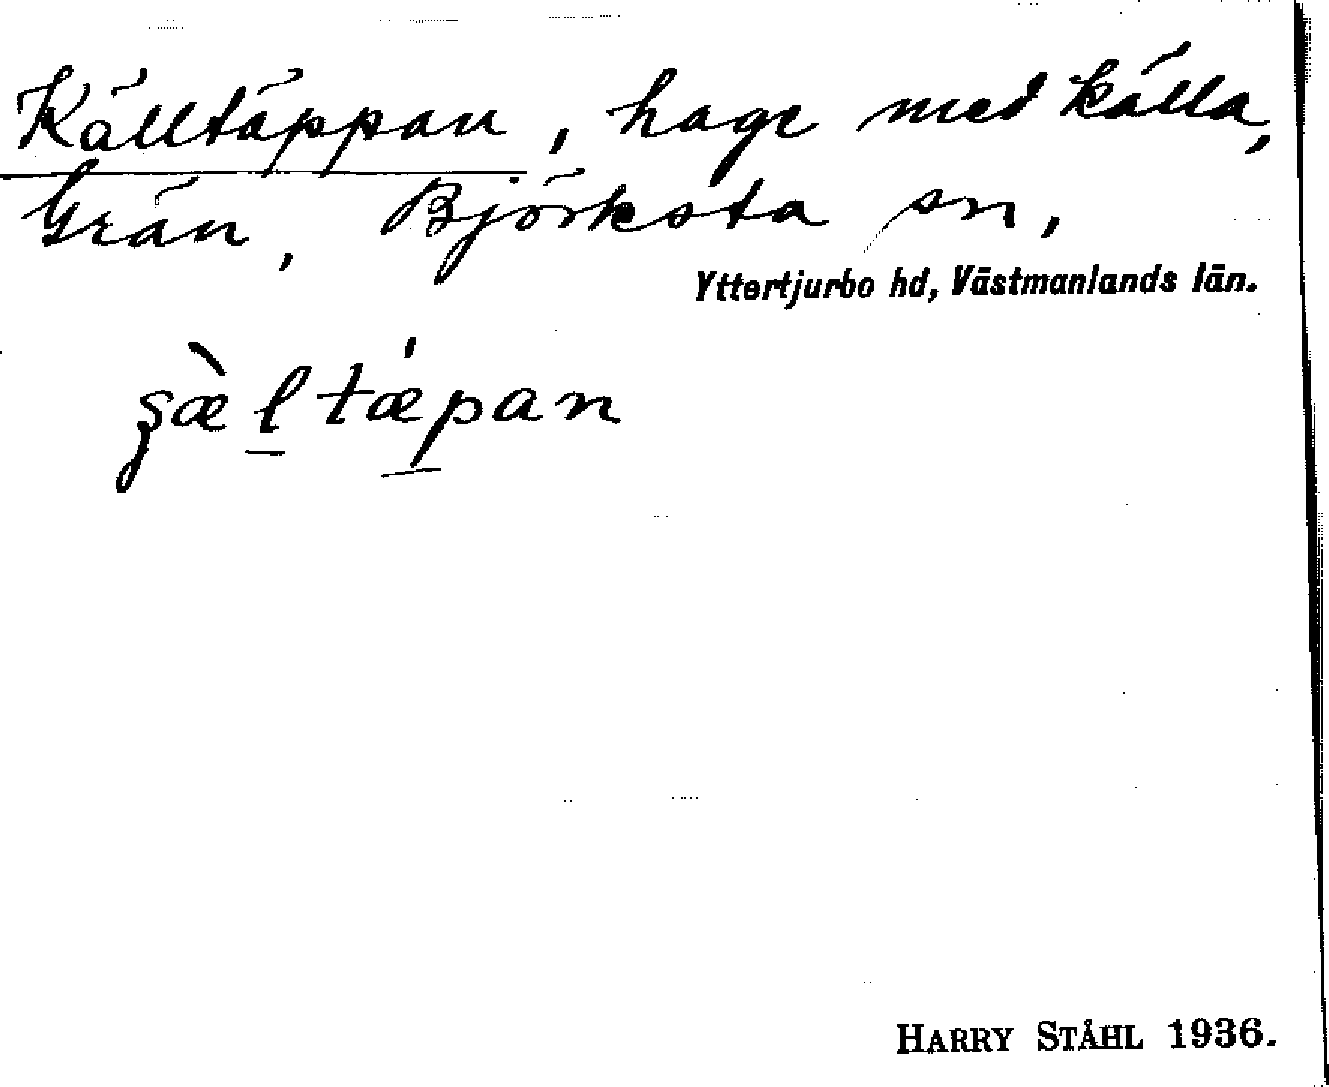 Källtäppan, hage med källa,
Grän, Björksta sn,
Yttertjurbo hd, Västmanlands län.
ʂæ̀l̲tæ̍p̲an
HARRY STÅHL 1936.